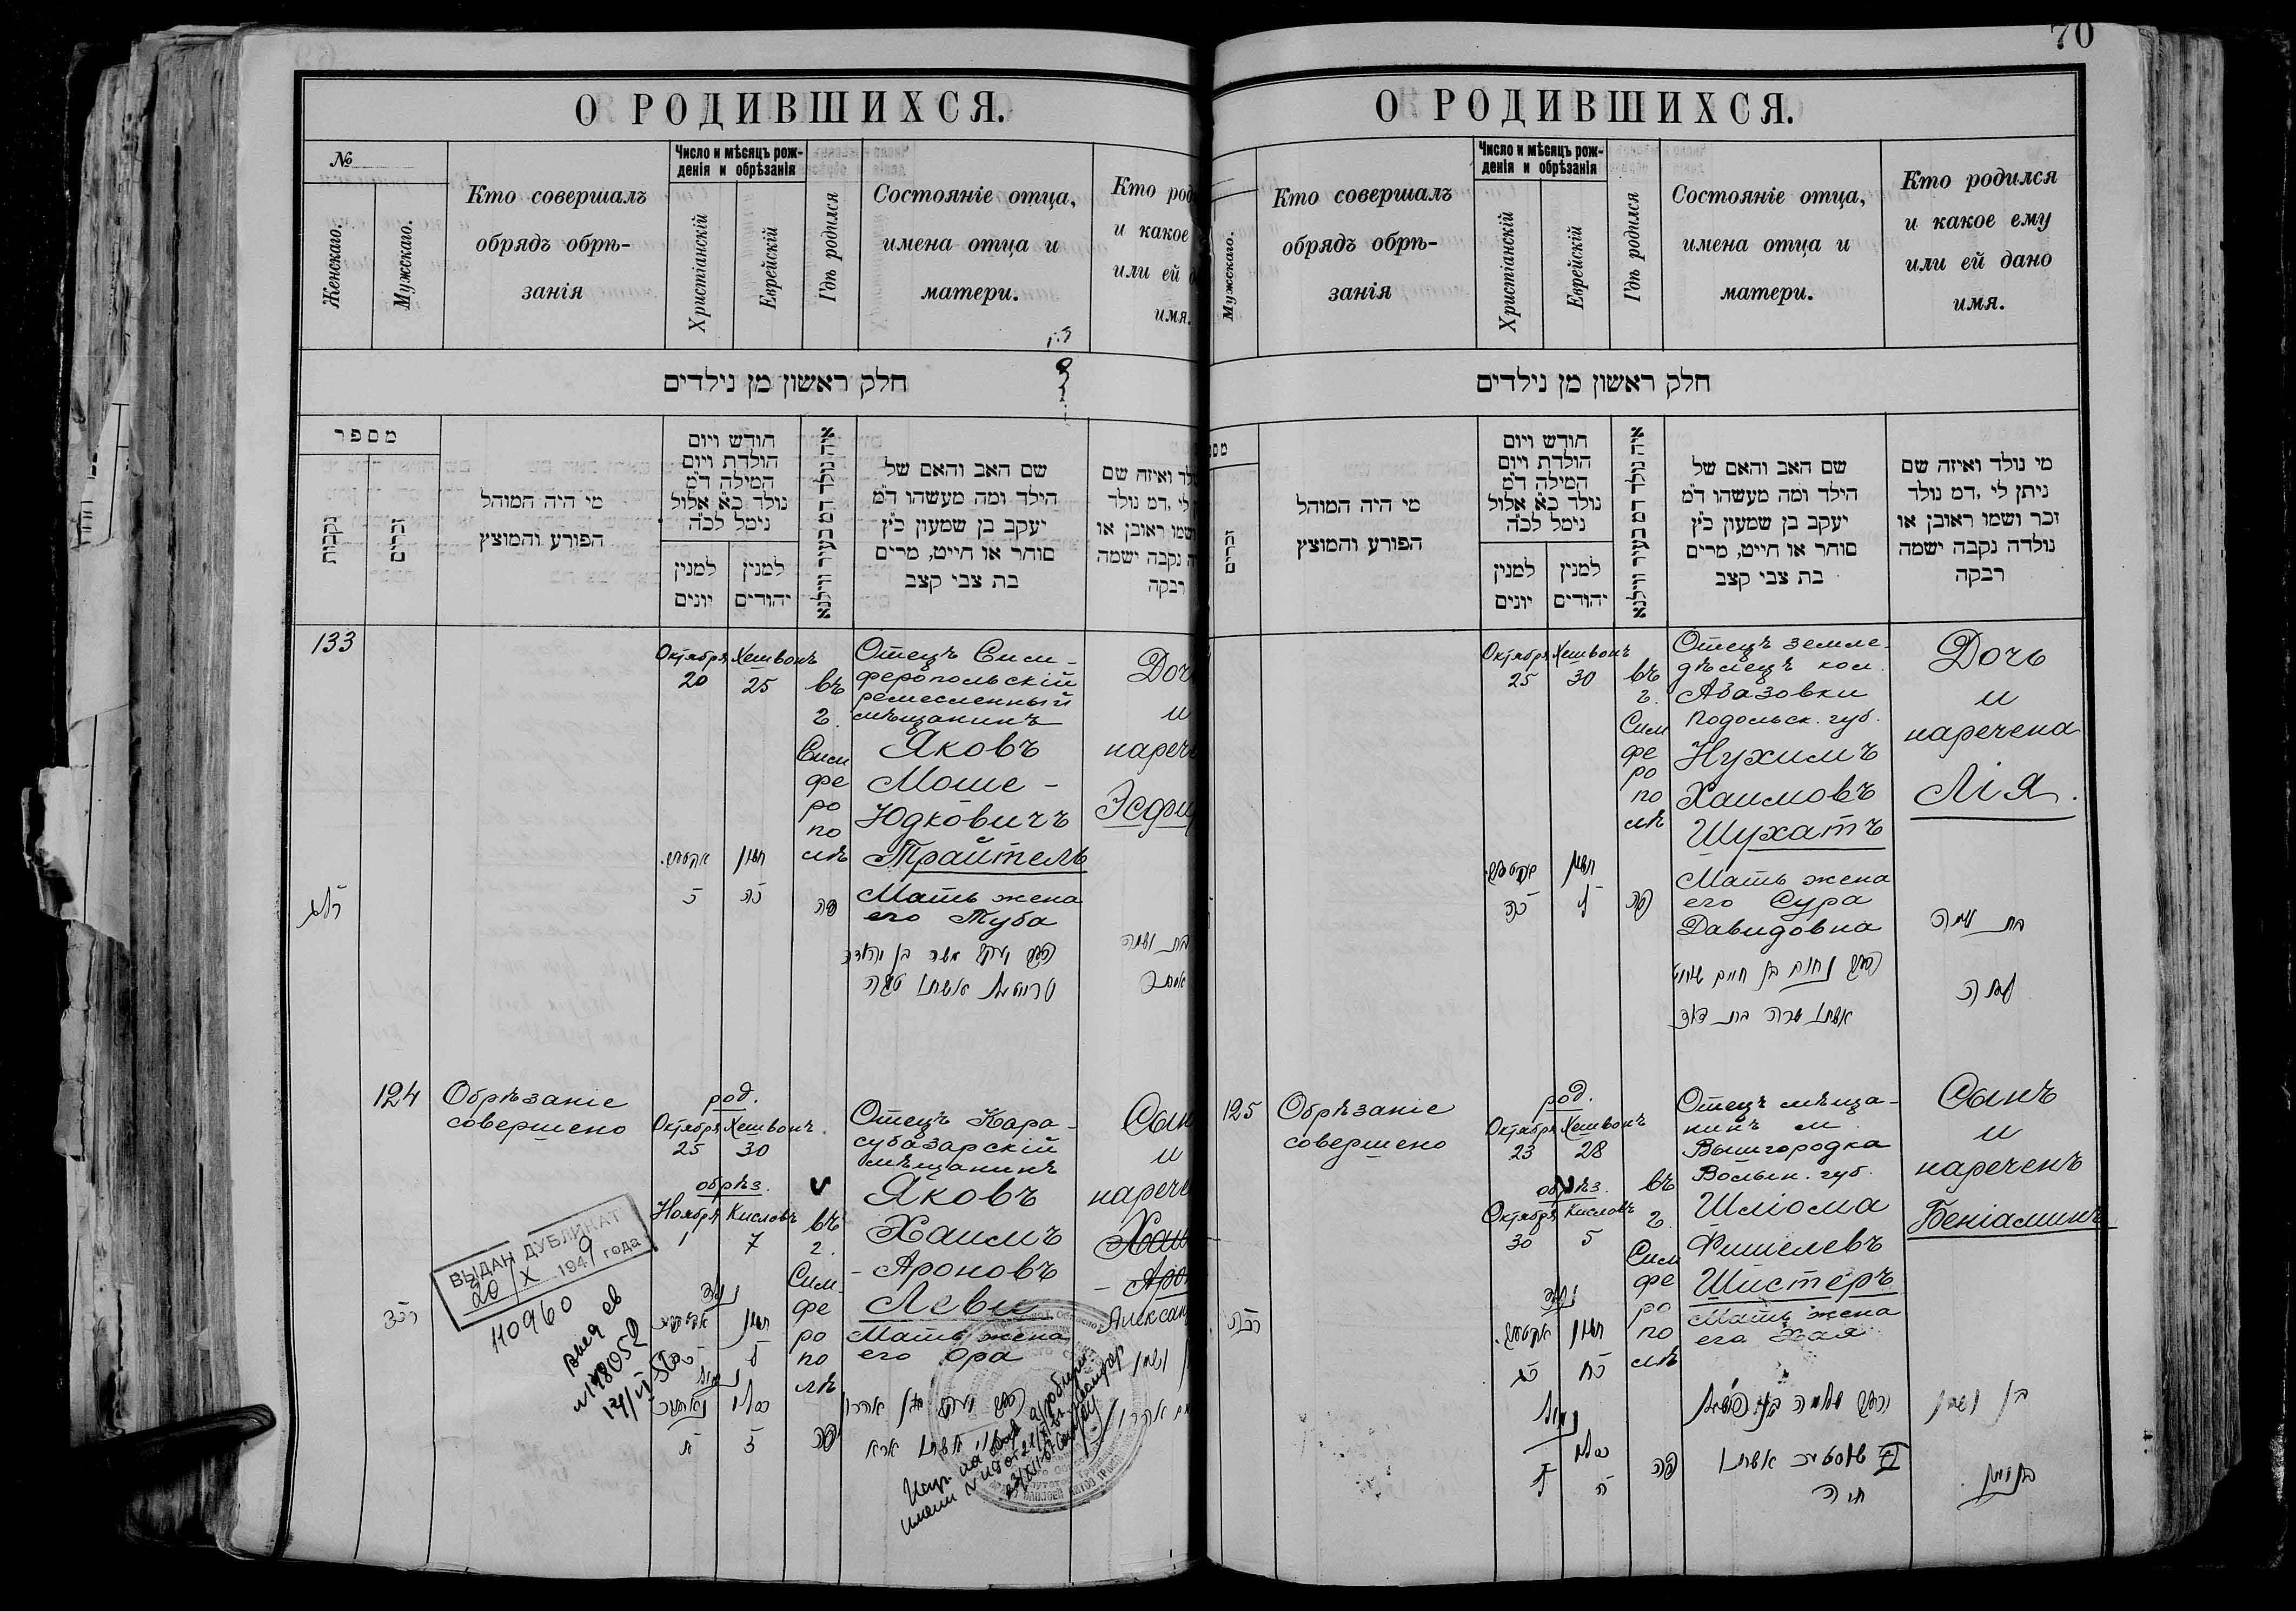 О РОДИВШИХСЯ.
№
Женскаго.
Мужскаго.
Кто совершалъ
обрядъ обрѣ-
занія
Число и мѣсяцъ рож-
денія и обрѣзанія
Христіанскій
Еврейскій
Гдѣ родился
Состояніе отца,
имена отца и
матери.
Кто род
и какое
или ей д
имя.
חלק ראשון מן נילדים
מספר
נקבות
זכרים
מי היה המוהל
הפורע והמוצץ
חודש ויום
הולדת ויום
המילה ד״מ
נולד כ״א אלול
נימל לכ״ה
למנין
יונים
למנין
יהודים
איה נולד דמ בעיר ווילנא
שם האב והאם של
הילד ומה מעשהו ד״מ
יעקב בן שמעון כ״ץ
סוחר או חייט, מרים
בת צבי קצב
לד ואיזה שם
לי ,דמ נולד
ושמו ראובן או
ה נקבה ישמה
רבקה
133
Октября
20
Хешвонъ
25
въ
г.
Сим
фе
ро
по
лѣ
Отецъ Сим-
феропольскій
ремесленный
мѣщанинъ
Яковъ
Моше-
Юдковичъ
Трайтель
Мать жена
его Туба
Доч
и
нареч
Эсфи
חשון
כה
פה
124
Обрѣзаніе
совершено
род.
Октября
25
Хешвонъ
30
обрѣз.
Ноября
1
Кисловъ
7
въ
г.
Сим
фе
ро
по
лѣ
Отецъ Кара-
субазарскій
мѣщанинъ
Яковъ
Хаимъ
-Ароновъ
Леви
Мать жена
его Ора
Сын
и
нарече
Хаи
-Аро
Алексан
ВЫДАН ДУБЛИКАТ
20/X 1949 года
110960
חשון
ל
פה
70
О РОДИВШИХСЯ.
Мужскаго.
Кто совершалъ
обрядъ обрѣ-
занія
Число и мѣсяцъ рож-
денія и обрѣзанія
Христіанскій
Еврейскій
Гдѣ родился
Состояніе отца,
имена отца и
матери.
Кто родился
и какое ему
или ей дано
имя.
חלק ראשון מן נילדים
זכרים
מי היה המוהל
הפורע והמוצץ
חודש ויום
הולדת ויום
המילה ד״מ
נולד כ״א אלול
נימל לכ״ה
למנין
יונים
למנין
יהודים
איה נולד דמ בעיר ווילנא
שם האב והאם של
הילד ומה מעשהו ד״מ
יעקב בן שמעון כ״ץ
סוחר או חייט, מרים
בת צבי קצב
מי נולד ואיזה שם
ניתן לי ,דמ נולד
זכר ושמו ראובן או
נולדה נקבה ישמה
רבקה
Октября
25
Хешвонъ
30
въ
г.
Сим
фе
ро
по
лѣ
Отецъ земле-
дѣлецъ кол.
Абазовки
Подольск. губ.
Нухимъ
Хаимовъ
Шухатъ
Мать жена
его Сура
Давидовна
Дочь
и
наречена
Лія.
חשון
ל
פה
אשתו שרה בת דוד
בת ושמה
לאה
125
Обрѣзаніе
совершено
род.
Октября
23
Хешвонъ
28
обрѣз.
Октября
30
Кисловъ
5
въ
г.
Сим
фе
ро
по
лѣ
Отецъ мѣща-
нинъ м.
Вышгородка
Волын. губ.
Шліома
Фишелевъ
Шистеръ
Мать жена
его Хая
Сынъ
и
нареченъ
Беніаминъ
חשון
כח
פה
חיה
בן ושמו
בנימין